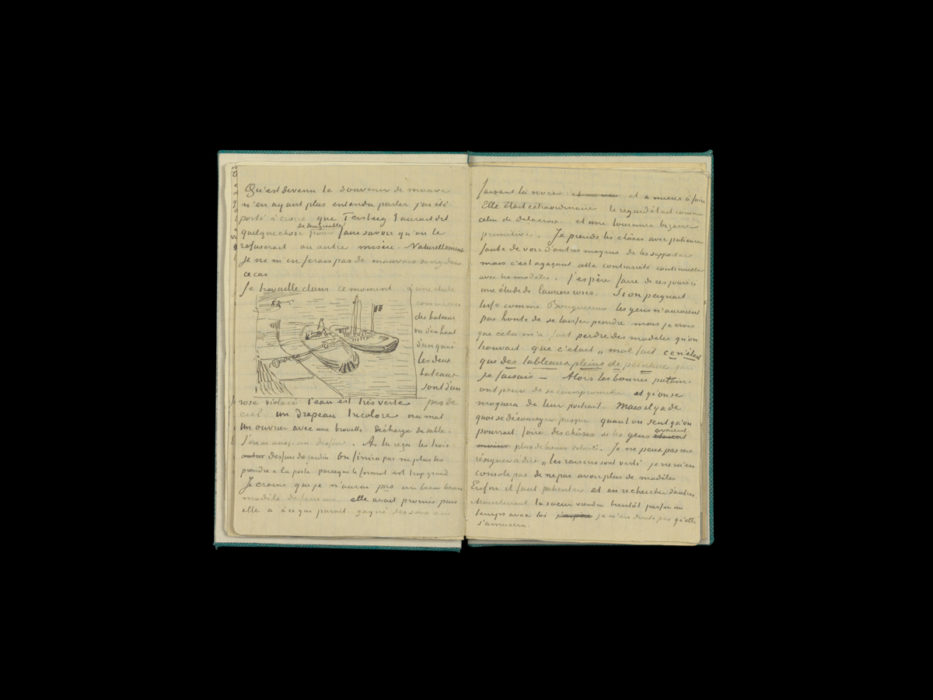 Qu'est devenu le souvenir de mauve
n'en ayant plus entendu parler j'ai été
porté à croire que Tersteeg t'aurait dit
de desagreable
quelquechose pour faire savoir qu'on le
refuserait ou autre misère. Naturellement
Je ne m'en ferais pas de mauvais sang dans
ce cas
Je travaille dans ce moment à une étude
comme cela
des bateaux
vu d'en haut
d'un quai
les deux
bateaux
sont d'un
rose violacé l'eau est très verte pas de
ciel un drapeau tricolore au mat.
Un ouvrier avec une brouette décharge du sable.
J'en ai aussi un dessin. As tu reçu les trois
dessins du jardin on finira par ne plus les
prendre à la poste parceque le format est trop grand
Je crains que je n'aurai pas un bien beau
modèle de femme elle avait promis puis
elle a à ce que parait gagné des sous en
faisant la noce et a mieux à faire
Elle était extraordinaire le regard était comme
celui de delacroix et une tournure bizarre
primitive. Je prends les choses avec patience
faute de voir d'autres moyens de les supporter
mais c'est agaçant cette contrariété continuelle
avec les modèles. J'espère faire de ces jours ci
une étude de lauriers roses. Si on peignait
lisse comme Bouguereau les gens n'auraient
pas honte de se laisser peindre mais je crois
que cela m'a fait perdre des modèles qu'on
trouvait que c'était „mal fait ce n'était
que des tableaux pleins de peinture que
je faisais — Alors les bonnes putains
ont peur de se compromettre et qu'on se
moquera de leur portrait. Mais il y a de
quoi se décourager presque quand on sent qu'on
avaient
pourrait faire des choses si les gens
plus de bonne volonté. Je ne peux pas me
résigner à dire „les raisins sont verts je ne m'en
console pas de ne pas avoir plus de modèles
Enfin il faut patienter et en rechercher d'autres
Maintenant la soeur viendra bientôt passer du
temps avec toi je n'en doute pas qu'elle
s'amusera.